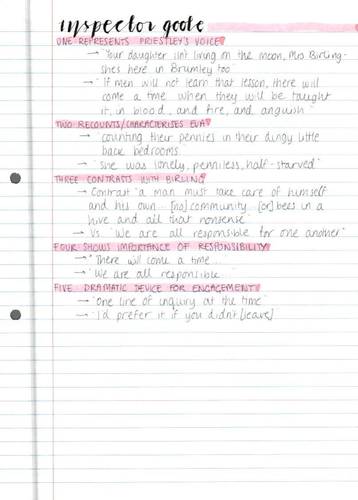 inspector goole
ONE REPRESENTS PRIESTLEY'S VOICE
→ "Your daughter isn't living on the moon, Mrs Birling -
shes here in Brumley too"
→ "If men will not learn that lesson, there will
come a time when they will be taught
it, in blood, and fire, and anguish"
TWO RECOUNTS/CHARACTERISES EVA
→ "counting their pennies in their dingy little
back bedrooms"
→ "she was lonely, penniless, half-starved"
THREE CONTRASTS WITH BIRLING
→ Contrast "a man must take care of himself
and his own... [no] community [or] bees in a
hive and all that nonsense"
→ Vs. "We are all responsible for one another"
FOUR SHOWS IMPORTANCE OF RESPONSIBILITY
→ "There will come a time..."
→ "We are all responsible..."
FIVE DRAMATIC DEVICE FOR ENGAGEMENT
→ "One line of inquiry at the time"
→ "I'd prefer it if you didn't [leave]